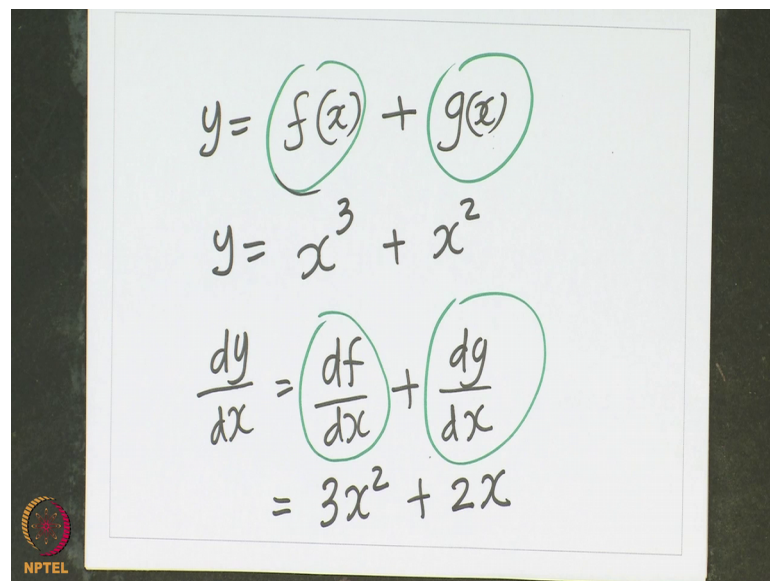 y = f(x) + g(x)
y = x³ + x²
dy/dx = df/dx + dg/dx
= 3x² + 2x
NPTEL